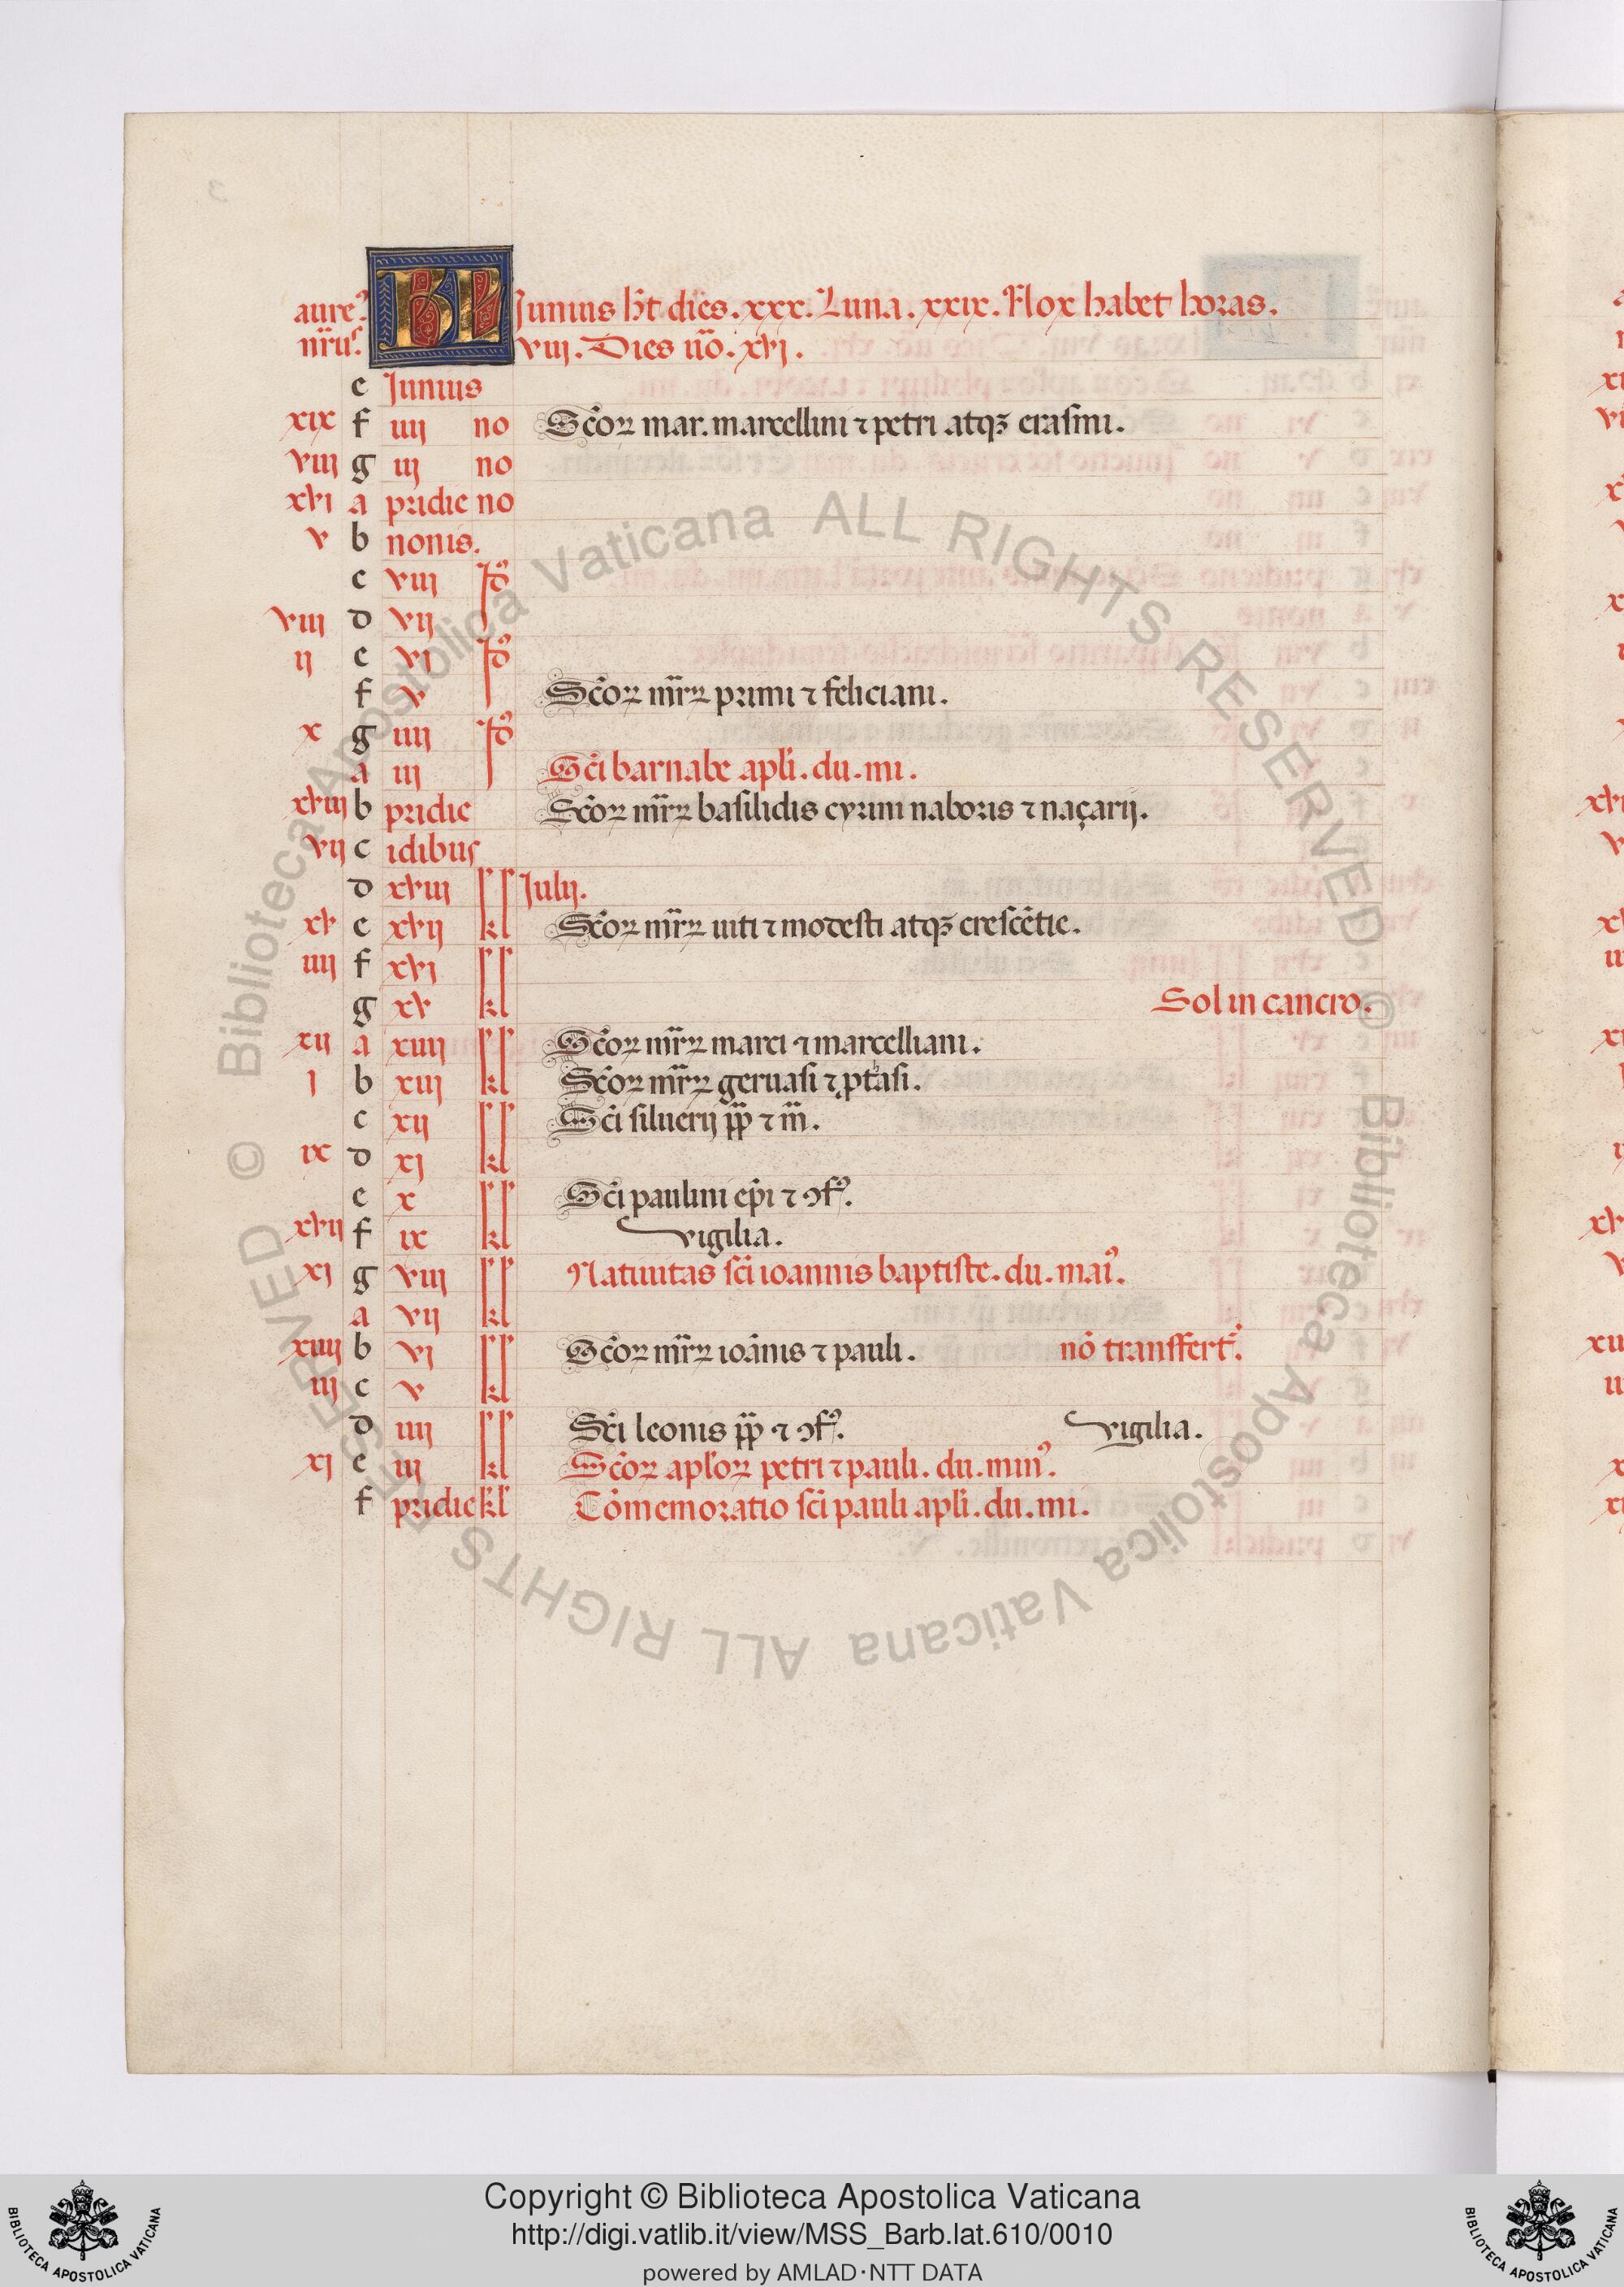 aure⁹ KL Junius h̄t dies. xxx. Luna. xxix. Nox habet horas.
nr̄uſ. viii. Dies u̅o. xvj.
e Junius
xix f iiij no Sc̄oꝝ mar. marcellini ⁊ petri atqꝫ eraſmi.
viij g iij no
xvi a pridie no
v b nonis.
c viij Id⁹
viii d vij
ij e vj Id⁹
f v Sc̄oꝝ mr̄ꝝ primi ⁊ feliciani.
x g iiij Id⁹
a iij Sc̄i barnabe apl̄i. du. mi.
xviij b pridie Sc̄oꝝ mr̄ꝝ baſilidis cyrini naboris ⁊ naçarij.
vij c idibuſ
d xviij kl Julij.
xv e xvij Sc̄oꝝ mr̄ꝝ uiti ⁊ modeſti atqꝫ creſcētie.
iiij f xvj kl
g xv Sol in cancro.
xij a xiiij kl Sc̄oꝝ mr̄ꝝ marci ⁊ marcelliani.
j b xiij Sc̄oꝝ mr̄ꝝ geruaſi ⁊ ꝓtaſi.
c xij kl Sc̄i ſiluerij pp̄ ⁊ m̄.
ix d xj
e x kl Sc̄i paulini ep̄i ⁊ ꝯf⁹.
xvij f ix vigilia.
xj g viij kl Natiuitas ſc̄i ioannis baptiſte. du. mai⁹.
a vij
xiiij b vj kl Sc̄oꝝ mr̄ꝝ ioānis ⁊ pauli. nō tranſfert̄.
iij c v
d iiij kl Sc̄i leonis pp̄ ⁊ ꝯf⁹. vigilia.
xj e iij Sc̄oꝝ apl̄oꝝ petri ⁊ pauli. du. min⁹.
f pridie kl̄ Cōmemoratio ſc̄i pauli apl̄i. du. mi.
© Biblioteca Apostolica Vaticana ALL RIGHTS RESERVED
© Biblioteca Apostolica Vaticana ALL RIGHTS RESERVED
Copyright © Biblioteca Apostolica Vaticana
http://digi.vatlib.it/view/MSS_Barb.lat.610/0010
powered by AMLAD·NTT DATA
BIBLIOTECA APOSTOLICA VATICANA
BIBLIOTECA APOSTOLICA VATICANA